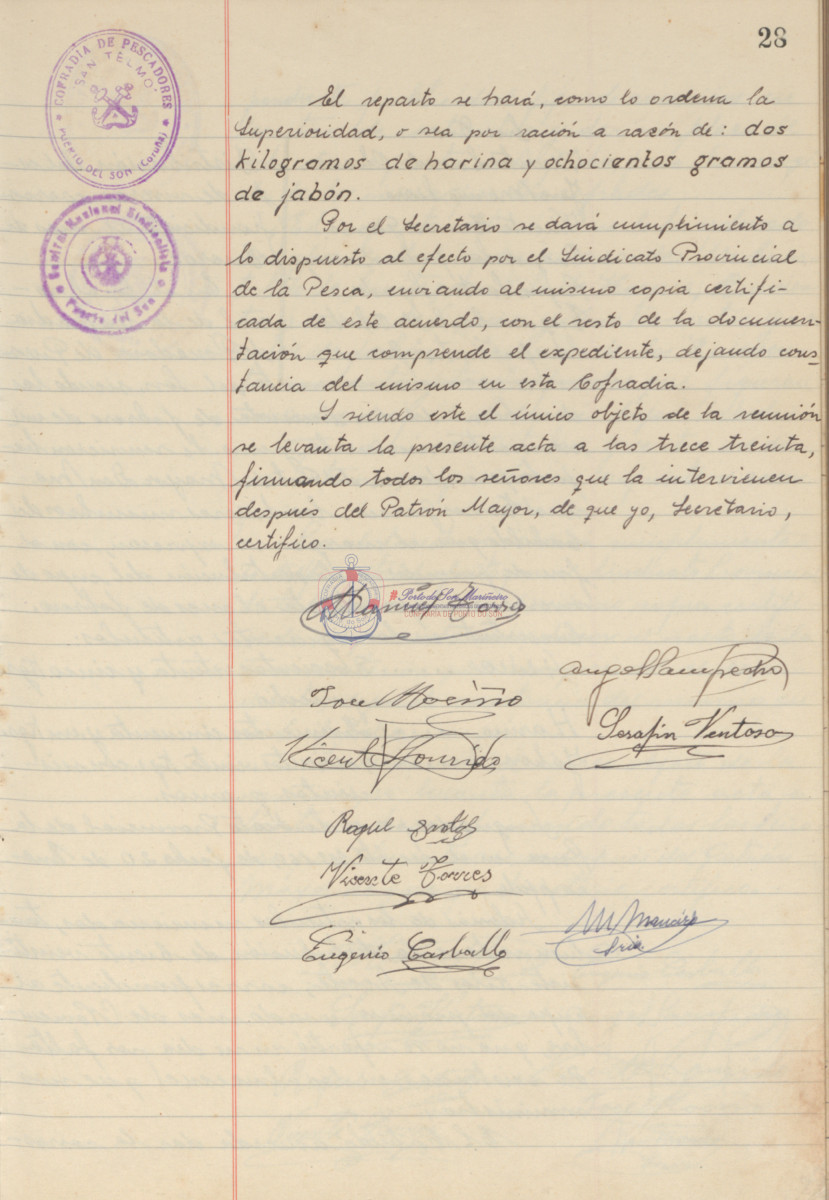 28
COFRADIA DE PESCADORES
"SAN TELMO"
PUERTO DEL SON (Coruña)
Central Nacional Sindicalista
Puerto del Son
El reparto se hará, como lo ordena la
Superioridad, o sea por ración a razón de: dos
kilogramos de harina y ochocientos gramos
de jabón.
Por el Secretario se dará cumplimiento a
lo dispuesto al efecto por el Sindicato Provincial
de la Pesca, enviando al mismo copia certifi-
cada de este acuerdo, con el resto de la documen-
tación que comprende el expediente, dejando cons-
tancia del mismo en esta Cofradia.
Y siendo este el único objeto de la reunión
se levanta la presente acta a las trece treinta,
firmando todos los señores que la intervienen
después del Patrón Mayor, de que yo, Secretario,
certifico.
#PortodoSonMariñeiro
CONFRARÍA DE PORTO DO SON
Manuel Torres
Angel Sampedro
Jose
Serafin Ventoso
Vicente
Raquel
Vicente Torres
Eugenio Carballo